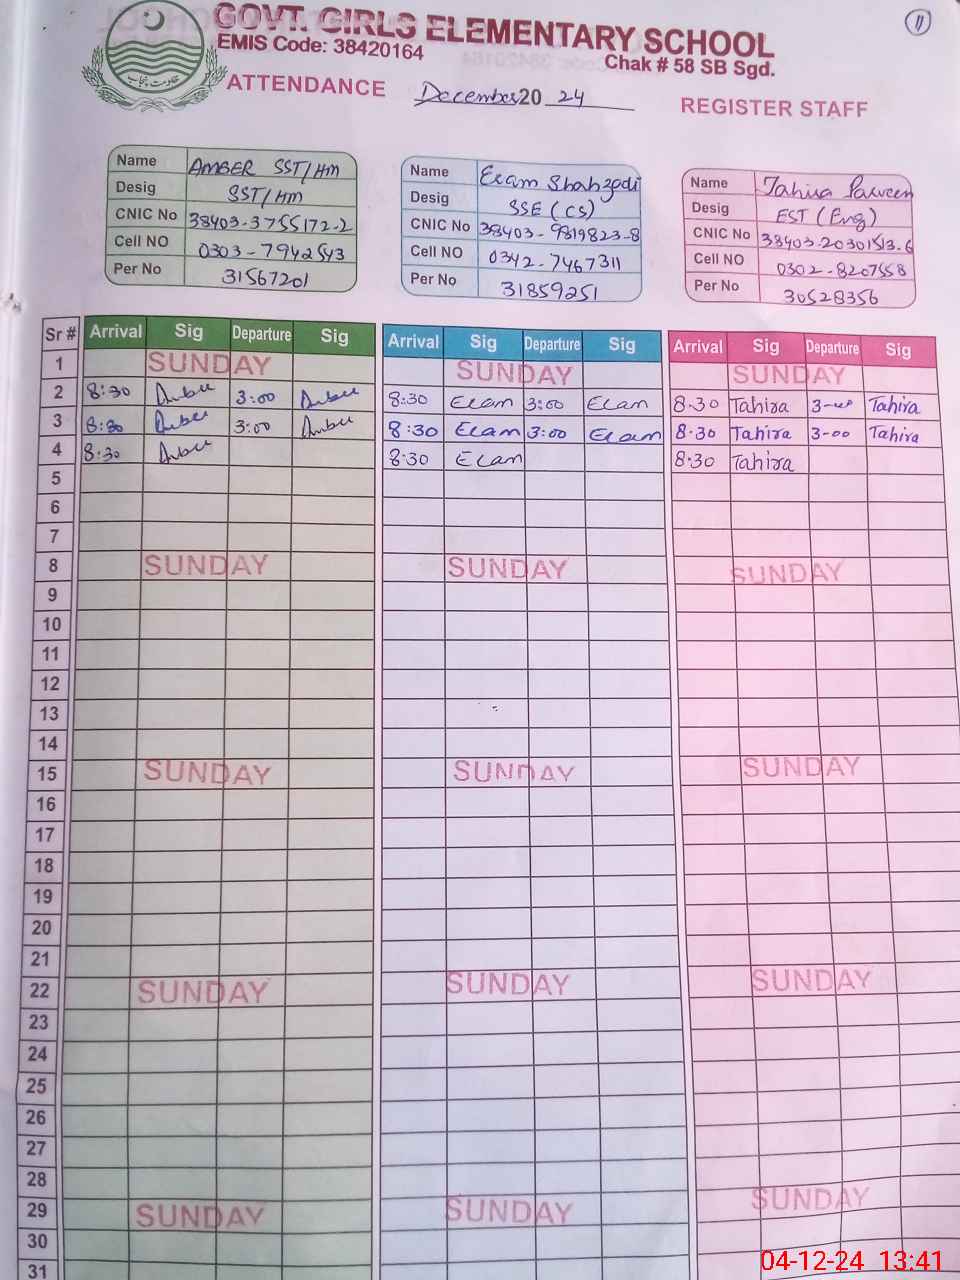 GOVT. GIRLS ELEMENTARY SCHOOL
EMIS Code: 38420164
Chak # 58 SB Sgd.
ATTENDANCE December 20 24 REGISTER STAFF
11
Name AMBER SST/HM
Desig SST/HM
CNIC No 38403-3755172-2
Cell NO 0303-7942543
Per No 31567201
Name Eram Shahzadi
Desig SSE (CS)
CNIC No 38403-9819823-8
Cell NO 0342-7467311
Per No 31859251
Name Tahira Parveen
Desig EST (Eng)
CNIC No 38403-2030153.6
Cell NO 0302-8207558
Per No 30528356
Sr # Arrival Sig Departure Sig Arrival Sig Departure Sig Arrival Sig Departure Sig
1 SUNDAY SUNDAY SUNDAY
2 8:30 Amber 3:00 Amber 8:30 Eram 3:00 Eram 8.30 Tahira 3-00 Tahira
3 8:30 Amber 3:00 Amber 8:30 Eram 3:00 Eram 8.30 Tahira 3-00 Tahira
4 8:30 Amber 8:30 Eram 8.30 Tahira
5
6
7
8 SUNDAY SUNDAY SUNDAY
9
10
11
12
13
14
15 SUNDAY SUNDAY SUNDAY
16
17
18
19
20
21
22 SUNDAY SUNDAY SUNDAY
23
24
25
26
27
28
29 SUNDAY SUNDAY SUNDAY
30
31
04-12-24 13:41